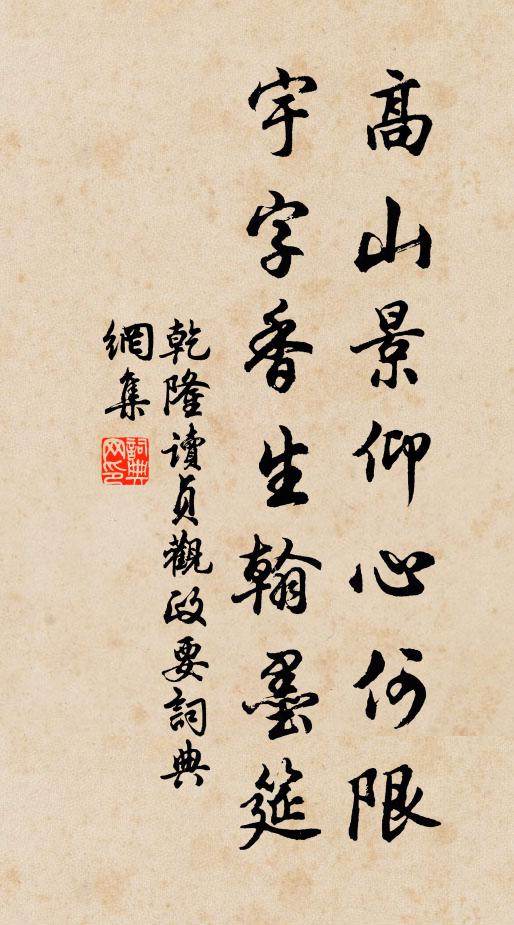 高山景仰心何限
宇字香生翰墨筵
乾隆讀貞觀政要詞典
網集
詞典
网印